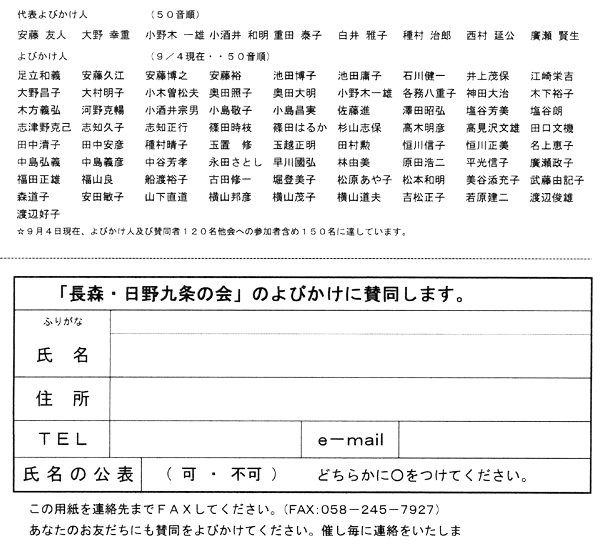 代表よびかけ人　（５０音順）
安藤 友人　大野 幸重　小野木 一雄　小酒井 和明　重田 泰子　白井 雅子　種村 治郎　西村 延公　廣瀬 賢生
よびかけ人　（９／４現在・・５０音順）
足立和義　安藤久江　安藤博之　安藤裕　池田博子　池田庸子　石川健一　井上茂保　江崎栄吉
大野昌子　大村明子　小木曽松夫　奥田照子　奥田大明　小野木一雄　各務八重子　神田大治　木下裕子
木方義弘　河野克暢　小酒井宗男　小島敬子　小島昌実　佐藤進　澤田昭弘　塩谷芳美　塩谷朗
志津野克己　志知久子　志知正行　篠田時枝　篠田はるか　杉山志保　高木明彦　高見沢文雄　田口文機
田中清子　田中安彦　種村晴子　玉置　修　玉越正明　田村勲　恒川信子　恒川正美　名上恵子
中島弘義　中島義彦　中谷芳孝　永田さとし　早川國弘　林由美　原田浩二　平光信子　廣瀬政子
福田正雄　福山良　船渡裕子　古田修一　堀登美子　松原あや子　松本和明　美谷添充子　武藤由記子
森道子　安田敏子　山下直道　横山邦彦　横山茂子　横山道夫　吉松正子　若原建二　渡辺俊雄
渡辺好子
☆９月４日現在、よびかけ人及び賛同者１２０名他会への参加者含め１５０名に達しています。
「長森・日野九条の会」のよびかけに賛同します。
ふりがな
氏　名
住　所
ＴＥＬ　e－mail
氏名の公表　（ 可 ・ 不可 ）　どちらかに〇をつけてください。
この用紙を連絡先までＦＡＸしてください。（FAX:058－245－7927）
あなたのお友だちにも賛同をよびかけてください。催し毎に連絡をいたしま